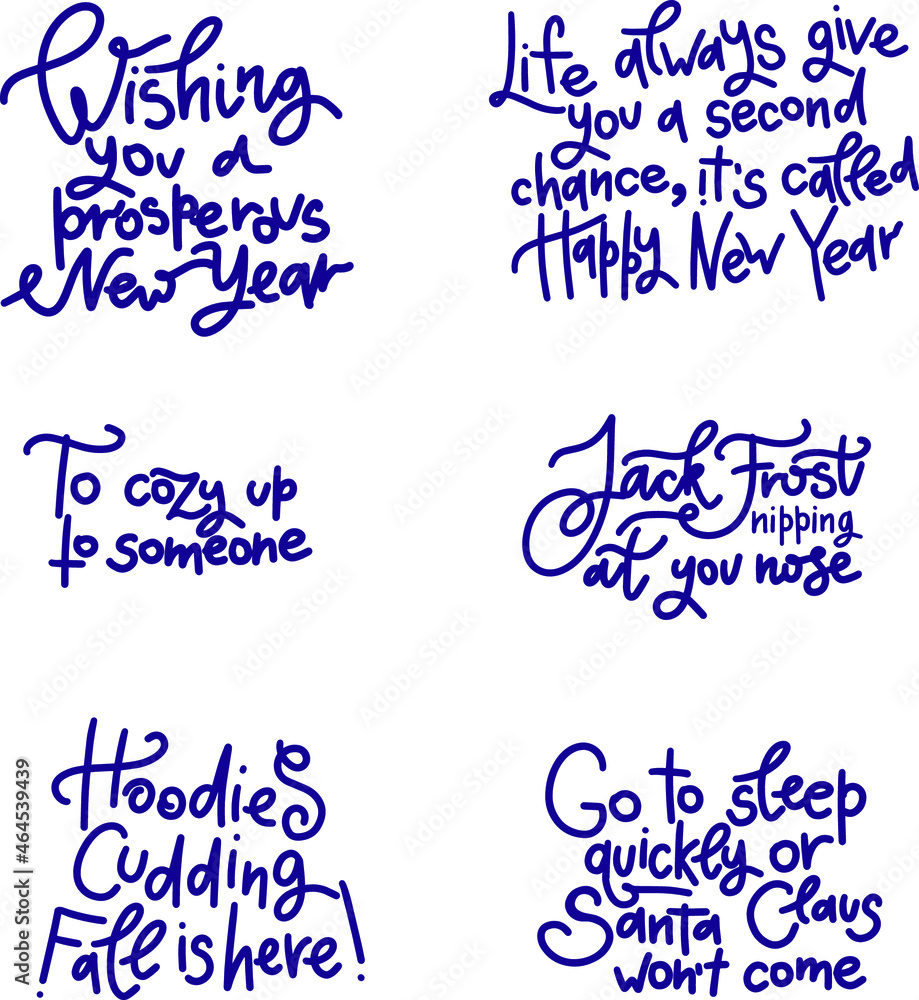 Wishing
you a
prosperous
New Year
Life always give
you a second
chance, it's called
Happy New Year
To cozy up
to someone
Jack Frost
nipping
at you nose
Hoodies
Cudding
!Fall is here!
Go to sleep
quickly or
Santa Claus
won't come
Adobe Stock | #464539439